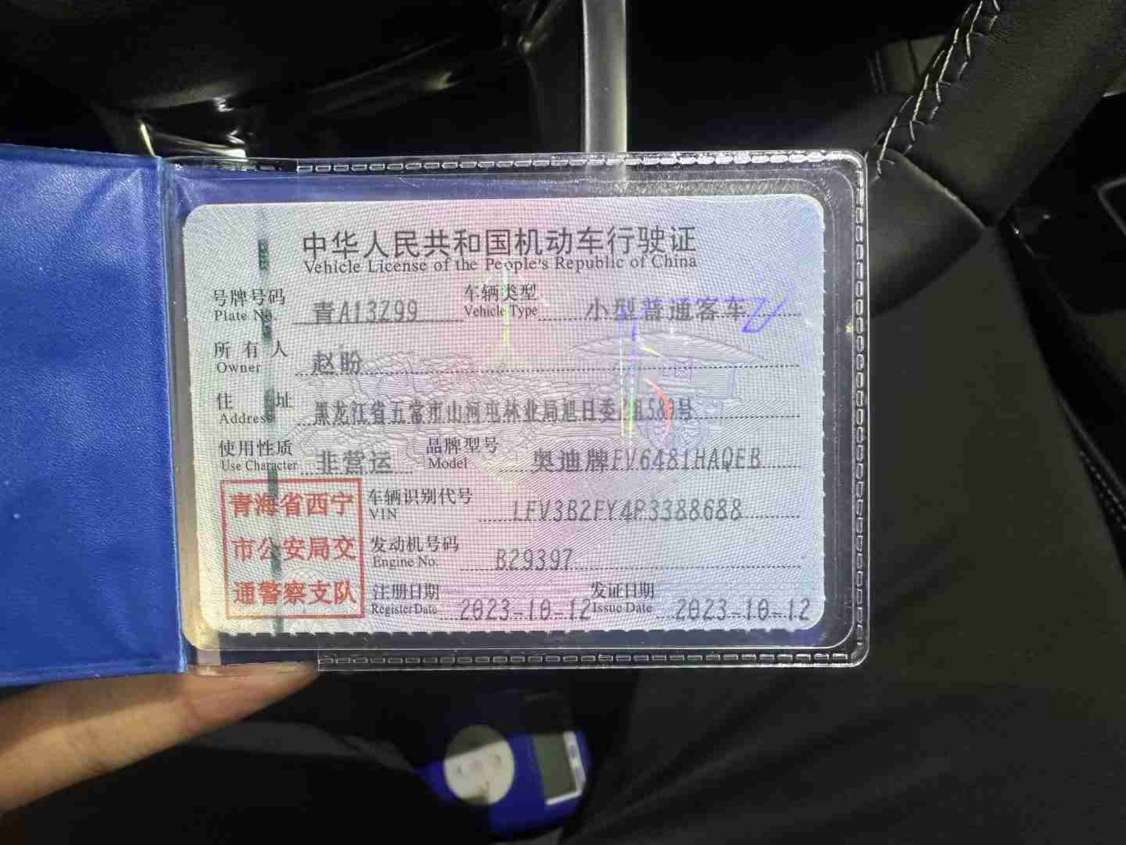 中华人民共和国机动车行驶证
Vehicle License of the People's Republic of China
号牌号码 青A13Z99 车辆类型 小型普通客车
Plate No. Vehicle Type
所有人 赵盼
Owner
住址 黑龙江省五常市山河屯林业局旭日委
Address
使用性质 非营运 品牌型号 奥迪牌FV6481HAQEB
Use Character Model
青海省西宁
市公安局交
通警察支队
车辆识别代号 LFV3B2FY4P3388688
VIN
发动机号码 B29397
Engine No.
注册日期 2023-10-12 发证日期 2023-10-12
Register Date Issue Date